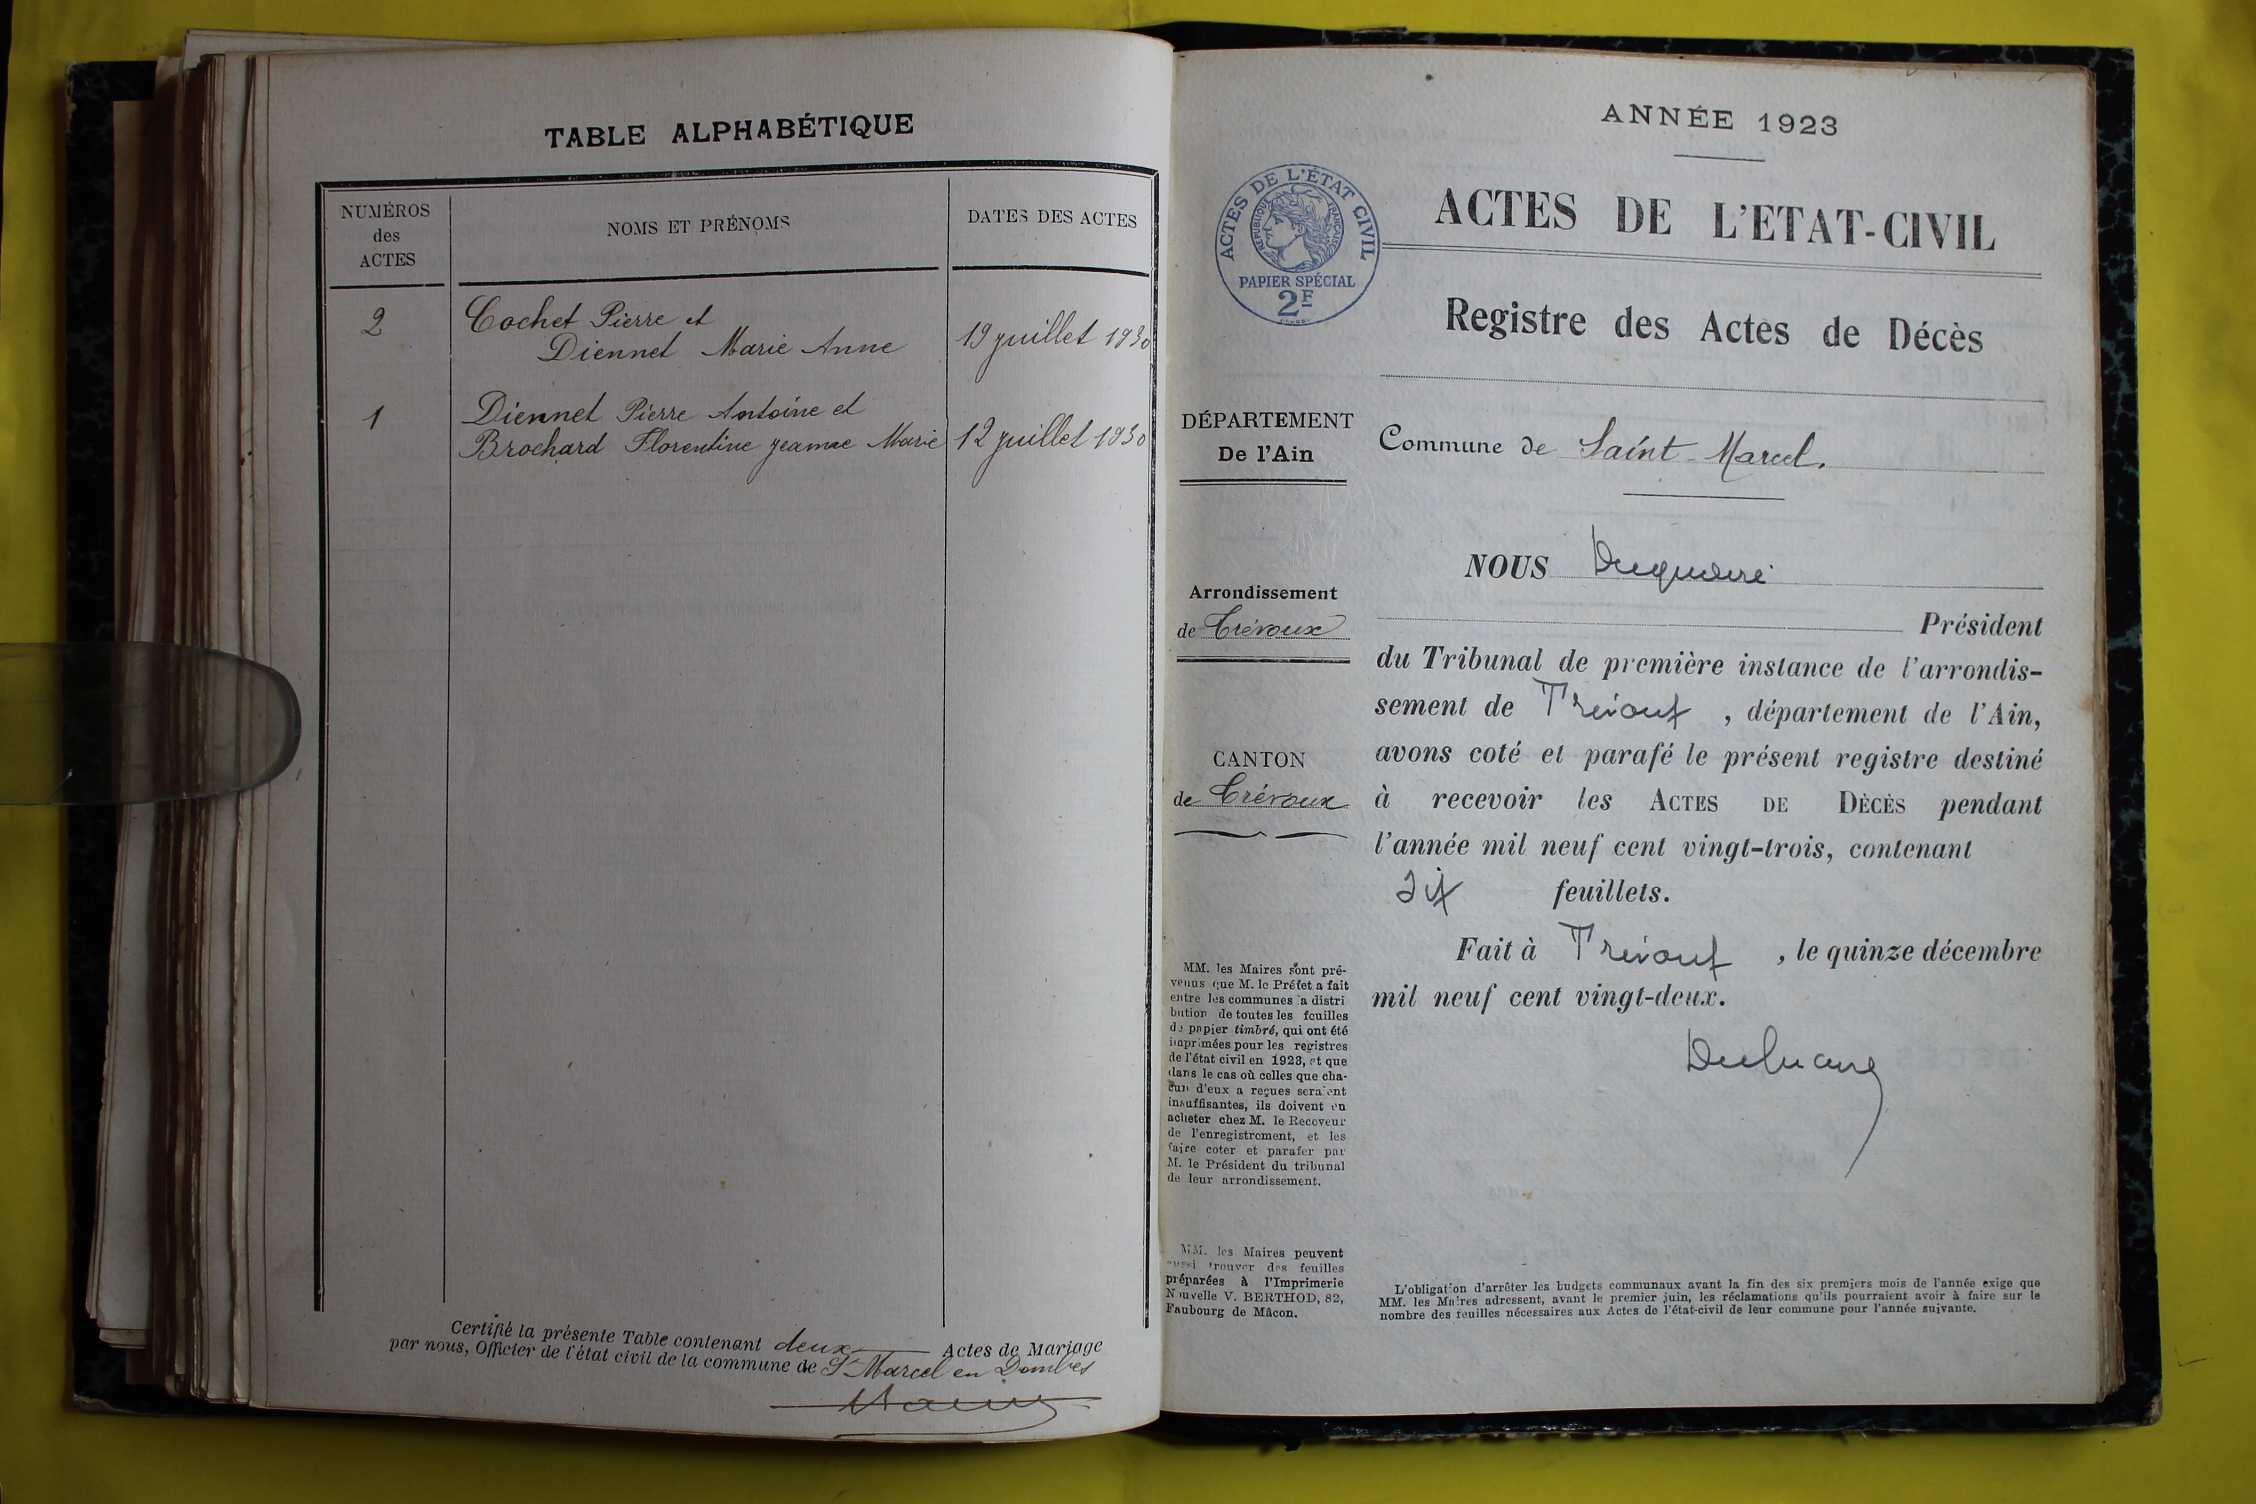 TABLE ALPHABÉTIQUE
NUMÉROS
des
ACTES
NOMS ET PRÉNOMS
DATES DES ACTES
2
Cochet Pierre et
Diennet Marie Anne
19 juillet 1930
1
Diennet Pierre Antoine et
Brochard Florentine Jeanne Marie
12 juillet 1930
Certifié la présente Table contenant deux Actes de Mariage
par nous, Officier de l'état civil de la commune de St Marcel en Dombes
ANNÉE 1923
ACTES DE L'ÉTAT CIVIL
RÉPUBLIQUE FRANÇAISE
PAPIER SPÉCIAL
2F
ACTES DE L'ETAT-CIVIL
Registre des Actes de Décès
DÉPARTEMENT
De l'Ain
Arrondissement
de Trévoux
CANTON
de Trévoux
MM. les Maires sont pré-
venus que M. le Préfet a fait
entre les communes la distri
bution de toutes les feuilles
de papier timbré, qui ont été
imprimées pour les registres
de l'état civil en 1923, et que
dans le cas où celles que cha-
cun d'eux a reçues seraient
insuffisantes, ils doivent en
acheter chez M. le Receveur
de l'enregistrement, et les
faire coter et parafer par
M. le Président du tribunal
de leur arrondissement.
MM. les Maires peuvent
aussi trouver des feuilles
préparées à l'Imprimerie
Nouvelle V. BERTHOD, 82,
Faubourg de Mâcon.
Commune de Saint-Marcel.
NOUS
Président
du Tribunal de première instance de l'arrondis-
sement de Trévoux, département de l'Ain,
avons coté et parafé le présent registre destiné
à recevoir les ACTES DE DÉCÈS pendant
l'année mil neuf cent vingt-trois, contenant
feuillets.
Fait à Trévoux, le quinze décembre
mil neuf cent vingt-deux.
L'obligation d'arrêter les budgets communaux avant la fin des six premiers mois de l'année exige que
MM. les Maires adressent, avant le premier juin, les réclamations qu'ils pourraient avoir à faire sur le
nombre des feuilles nécessaires aux Actes de l'état-civil de leur commune pour l'année suivante.